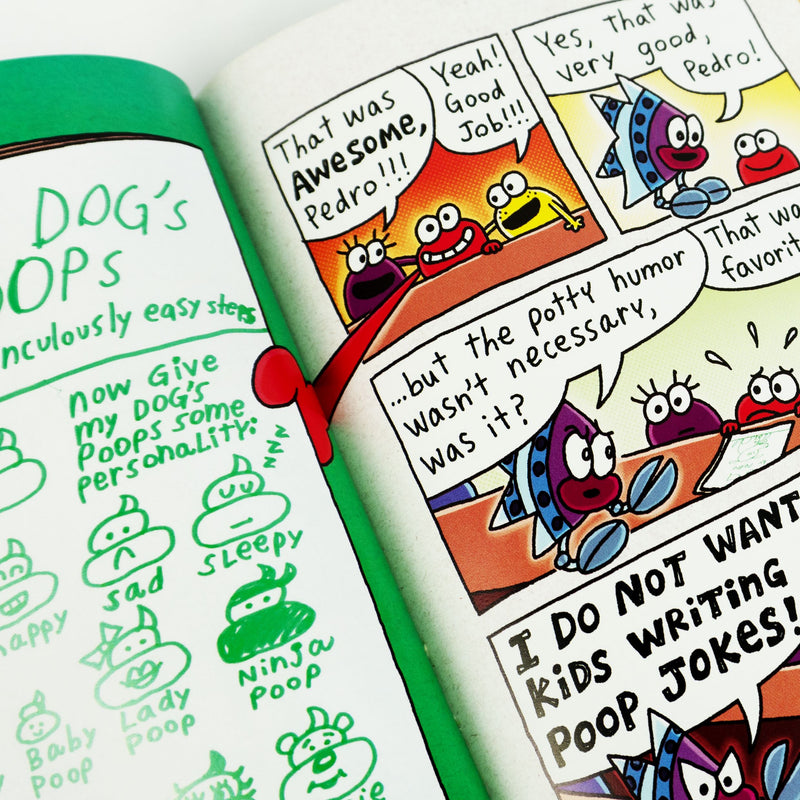 DOG's
OOPS
easy steps
now Give
my DOG's
POOPS some
personality:
zzz
sad
sleepy
happy
Lady
Poop
Ninja
Poop
Baby
Poop
That was
AWesome,
Pedro!!!
Yeah!
Good
Job!!!
Yes, That was
very good,
Pedro!
...but the potty humor
wasn't necessary,
was it?
That was
favorit
I DO NOT WANT
KiDS WRiTiNG
POOP JOKES!